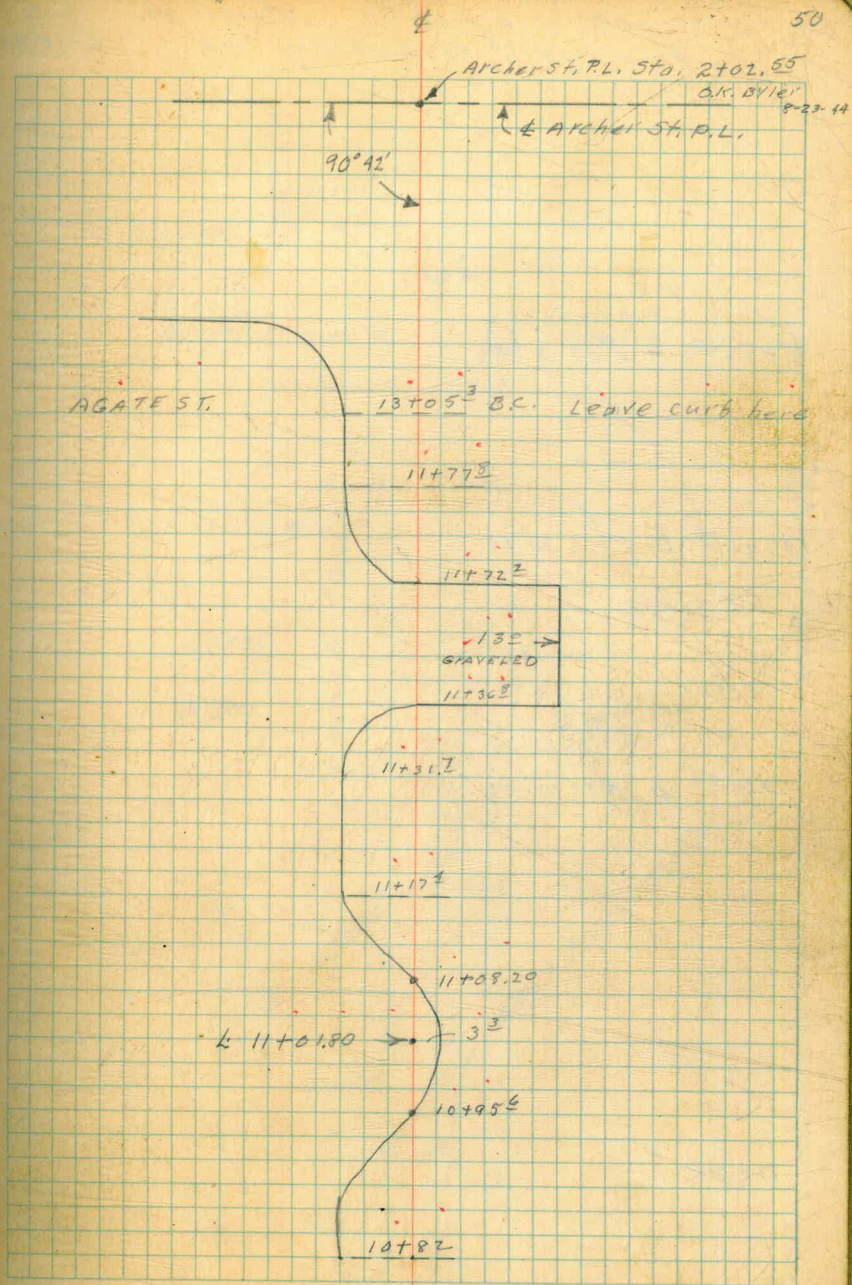 ℄ 50
Archer St. P.L. Sta. 2+02.55
O.K. Byler
8-23-44
℄ Archer St. P.L.
90°42'
AGATE ST. 13+05³ B.C. Leave curb here
11+77⁸
11+72²
13⁰
GRAVELED
11+36⁸
11+31.7
11+17⁴
11+08.20
11+01.80 3³
10+95⁶
10+82